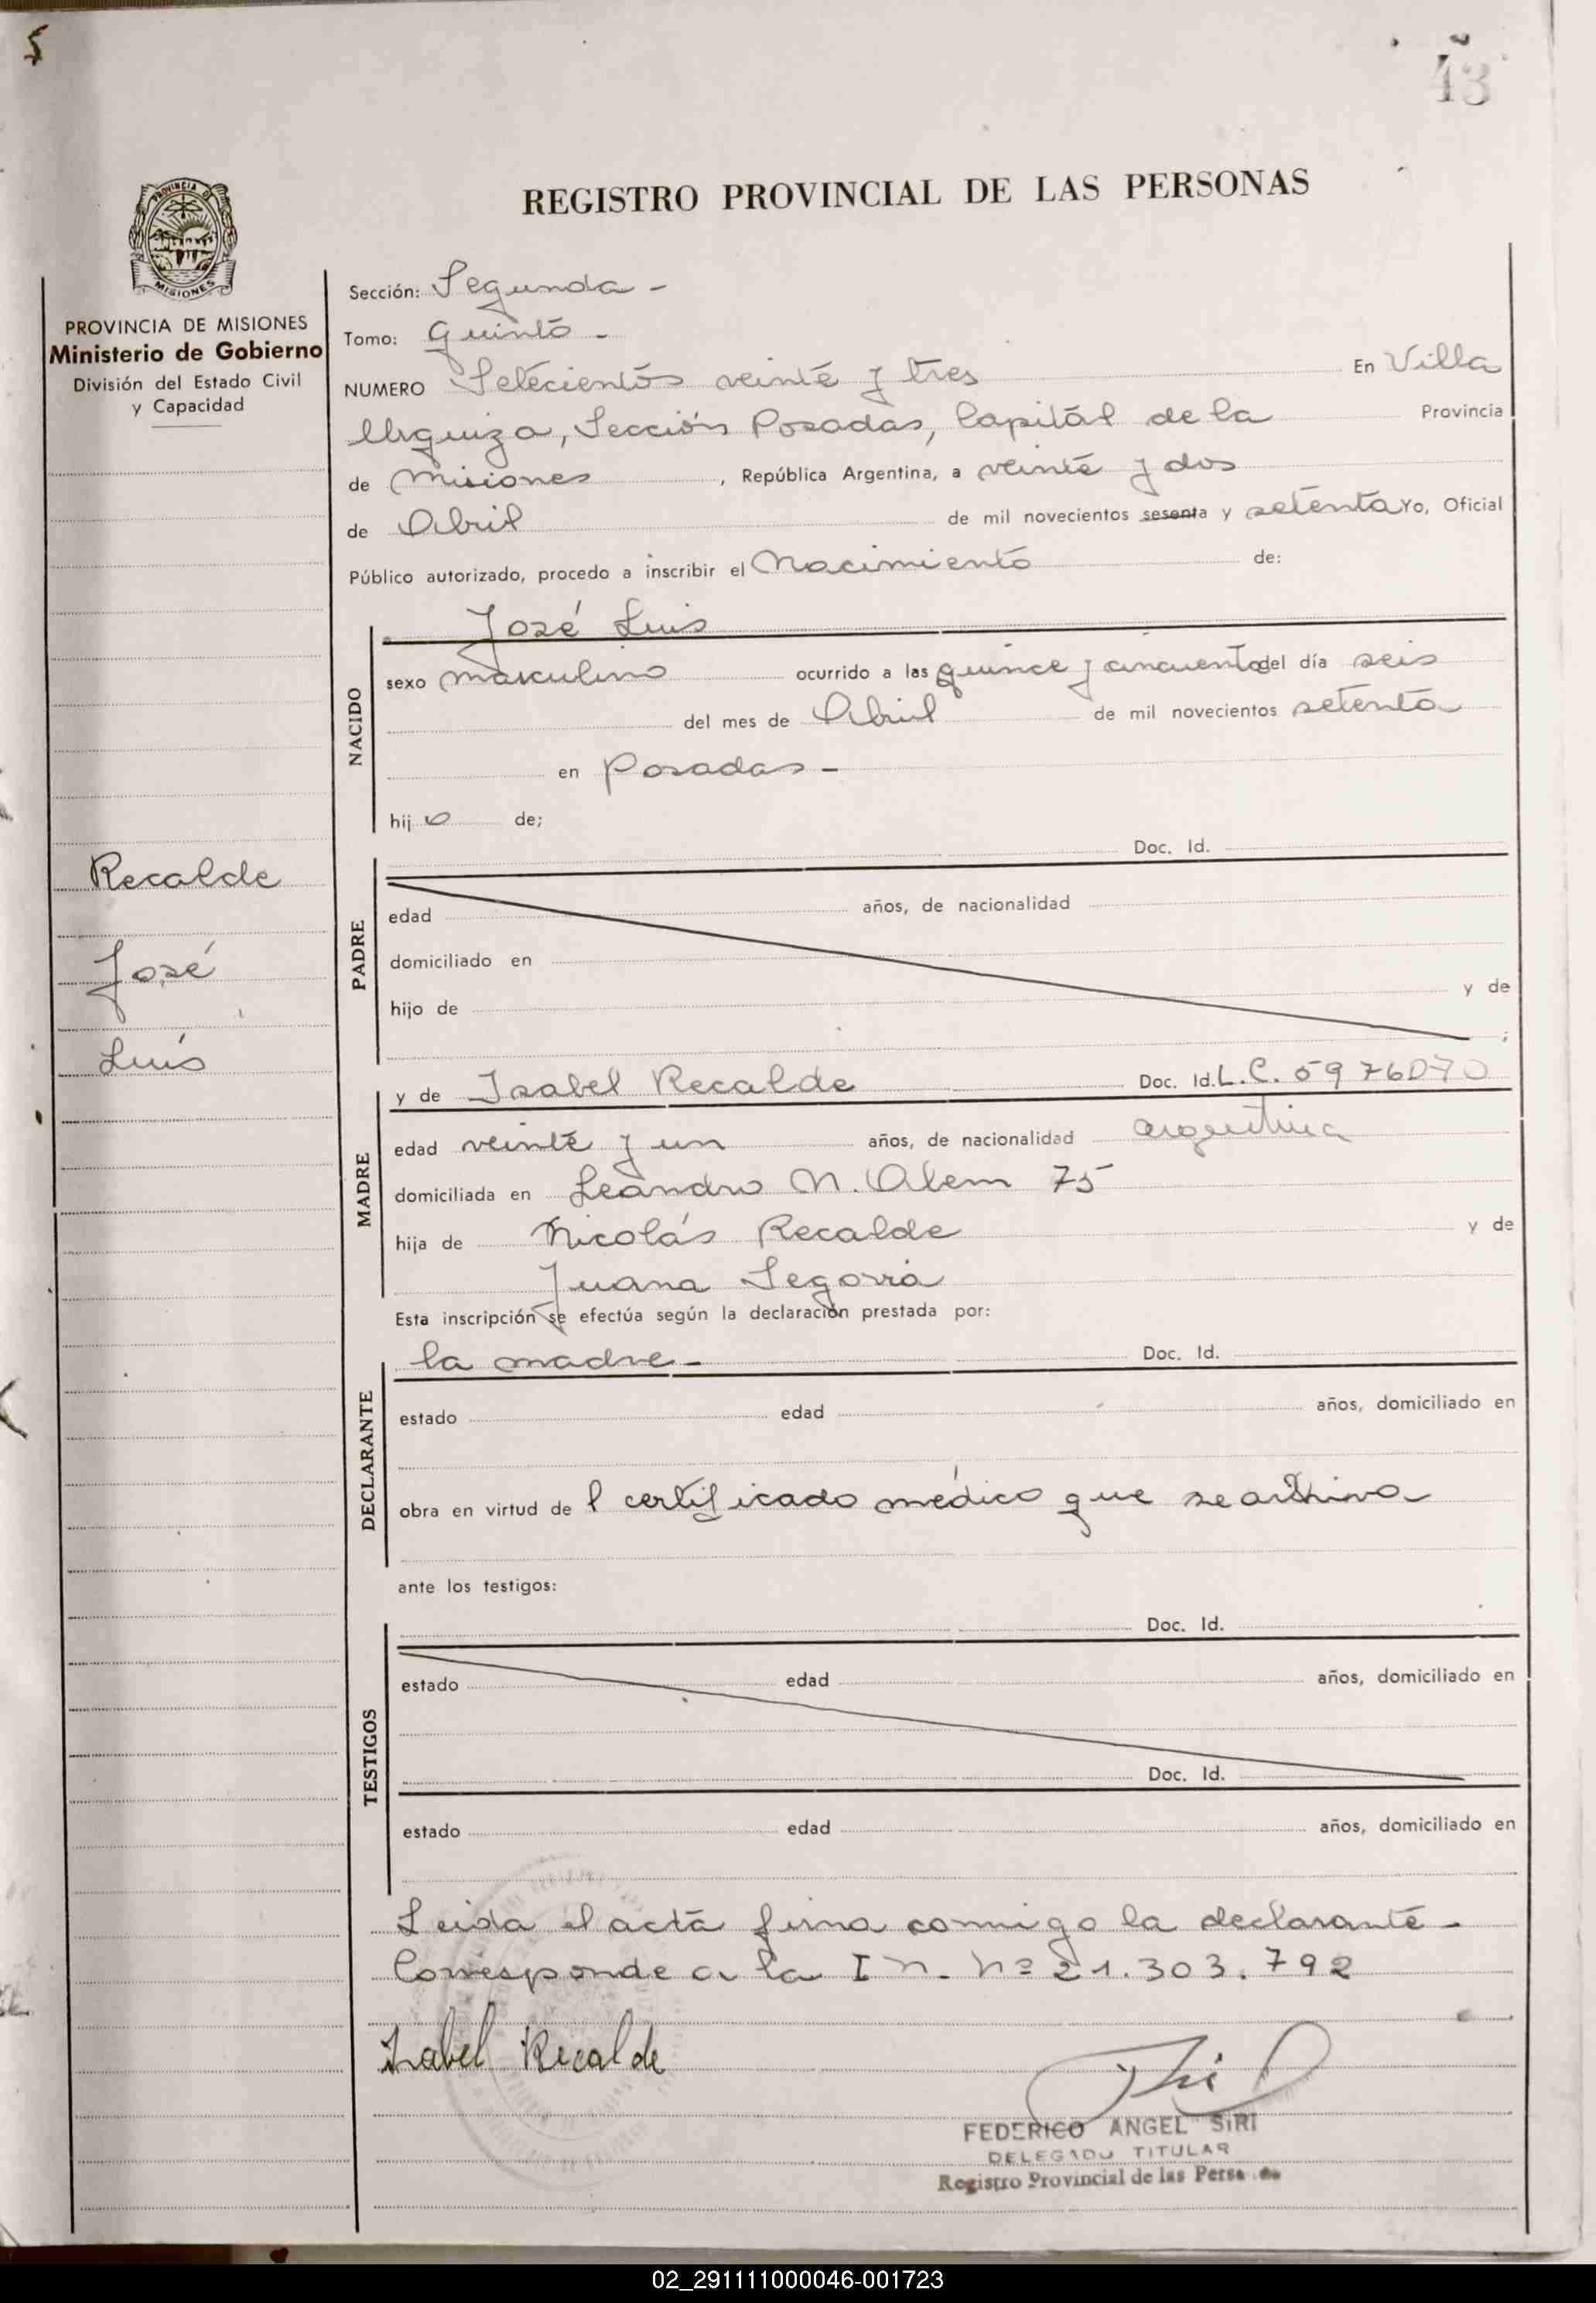 5
43
REGISTRO PROVINCIAL DE LAS PERSONAS
PROVINCIA DE MISIONES
Ministerio de Gobierno
División del Estado Civil
y Capacidad
Recalde
José
Luis
Sección: Segunda -
Tomo: Quinto -
NUMERO Setecientos veinte y tres En Villa
Urquiza, Sección Posadas, Capital de la Provincia
de Misiones, República Argentina, a veinte y dos
de Abril de mil novecientos sesenta y setenta Yo, Oficial
Público autorizado, procedo a inscribir el Nacimiento de:
NACIDO
José Luis
sexo masculino ocurrido a las quince y cincuenta del día seis
del mes de Abril de mil novecientos setenta
en Posadas -
hijo de;
PADRE
Doc. Id.
edad años, de nacionalidad
domiciliado en
hijo de y de
;
MADRE
y de Isabel Recalde Doc. Id. L.C. 5976070
edad veinte y un años, de nacionalidad argentina
domiciliada en Leandro N. Alem 75
hija de Nicolás Recalde y de
Juana Segovia
Esta inscripción se efectúa según la declaración prestada por:
DECLARANTE
la madre - Doc. Id.
estado edad años, domiciliado en
obra en virtud de l certificado médico que se archiva
ante los testigos:
TESTIGOS
Doc. Id.
estado edad años, domiciliado en
Doc. Id.
estado edad años, domiciliado en
Leida el acta firma conmigo la declarante -
Corresponde a la I N. Nº 21.303.792
Isabel Recalde
FEDERICO ANGEL SIRI
DELEGADO TITULAR
Registro Provincial de las Perso
02_291111000046-001723